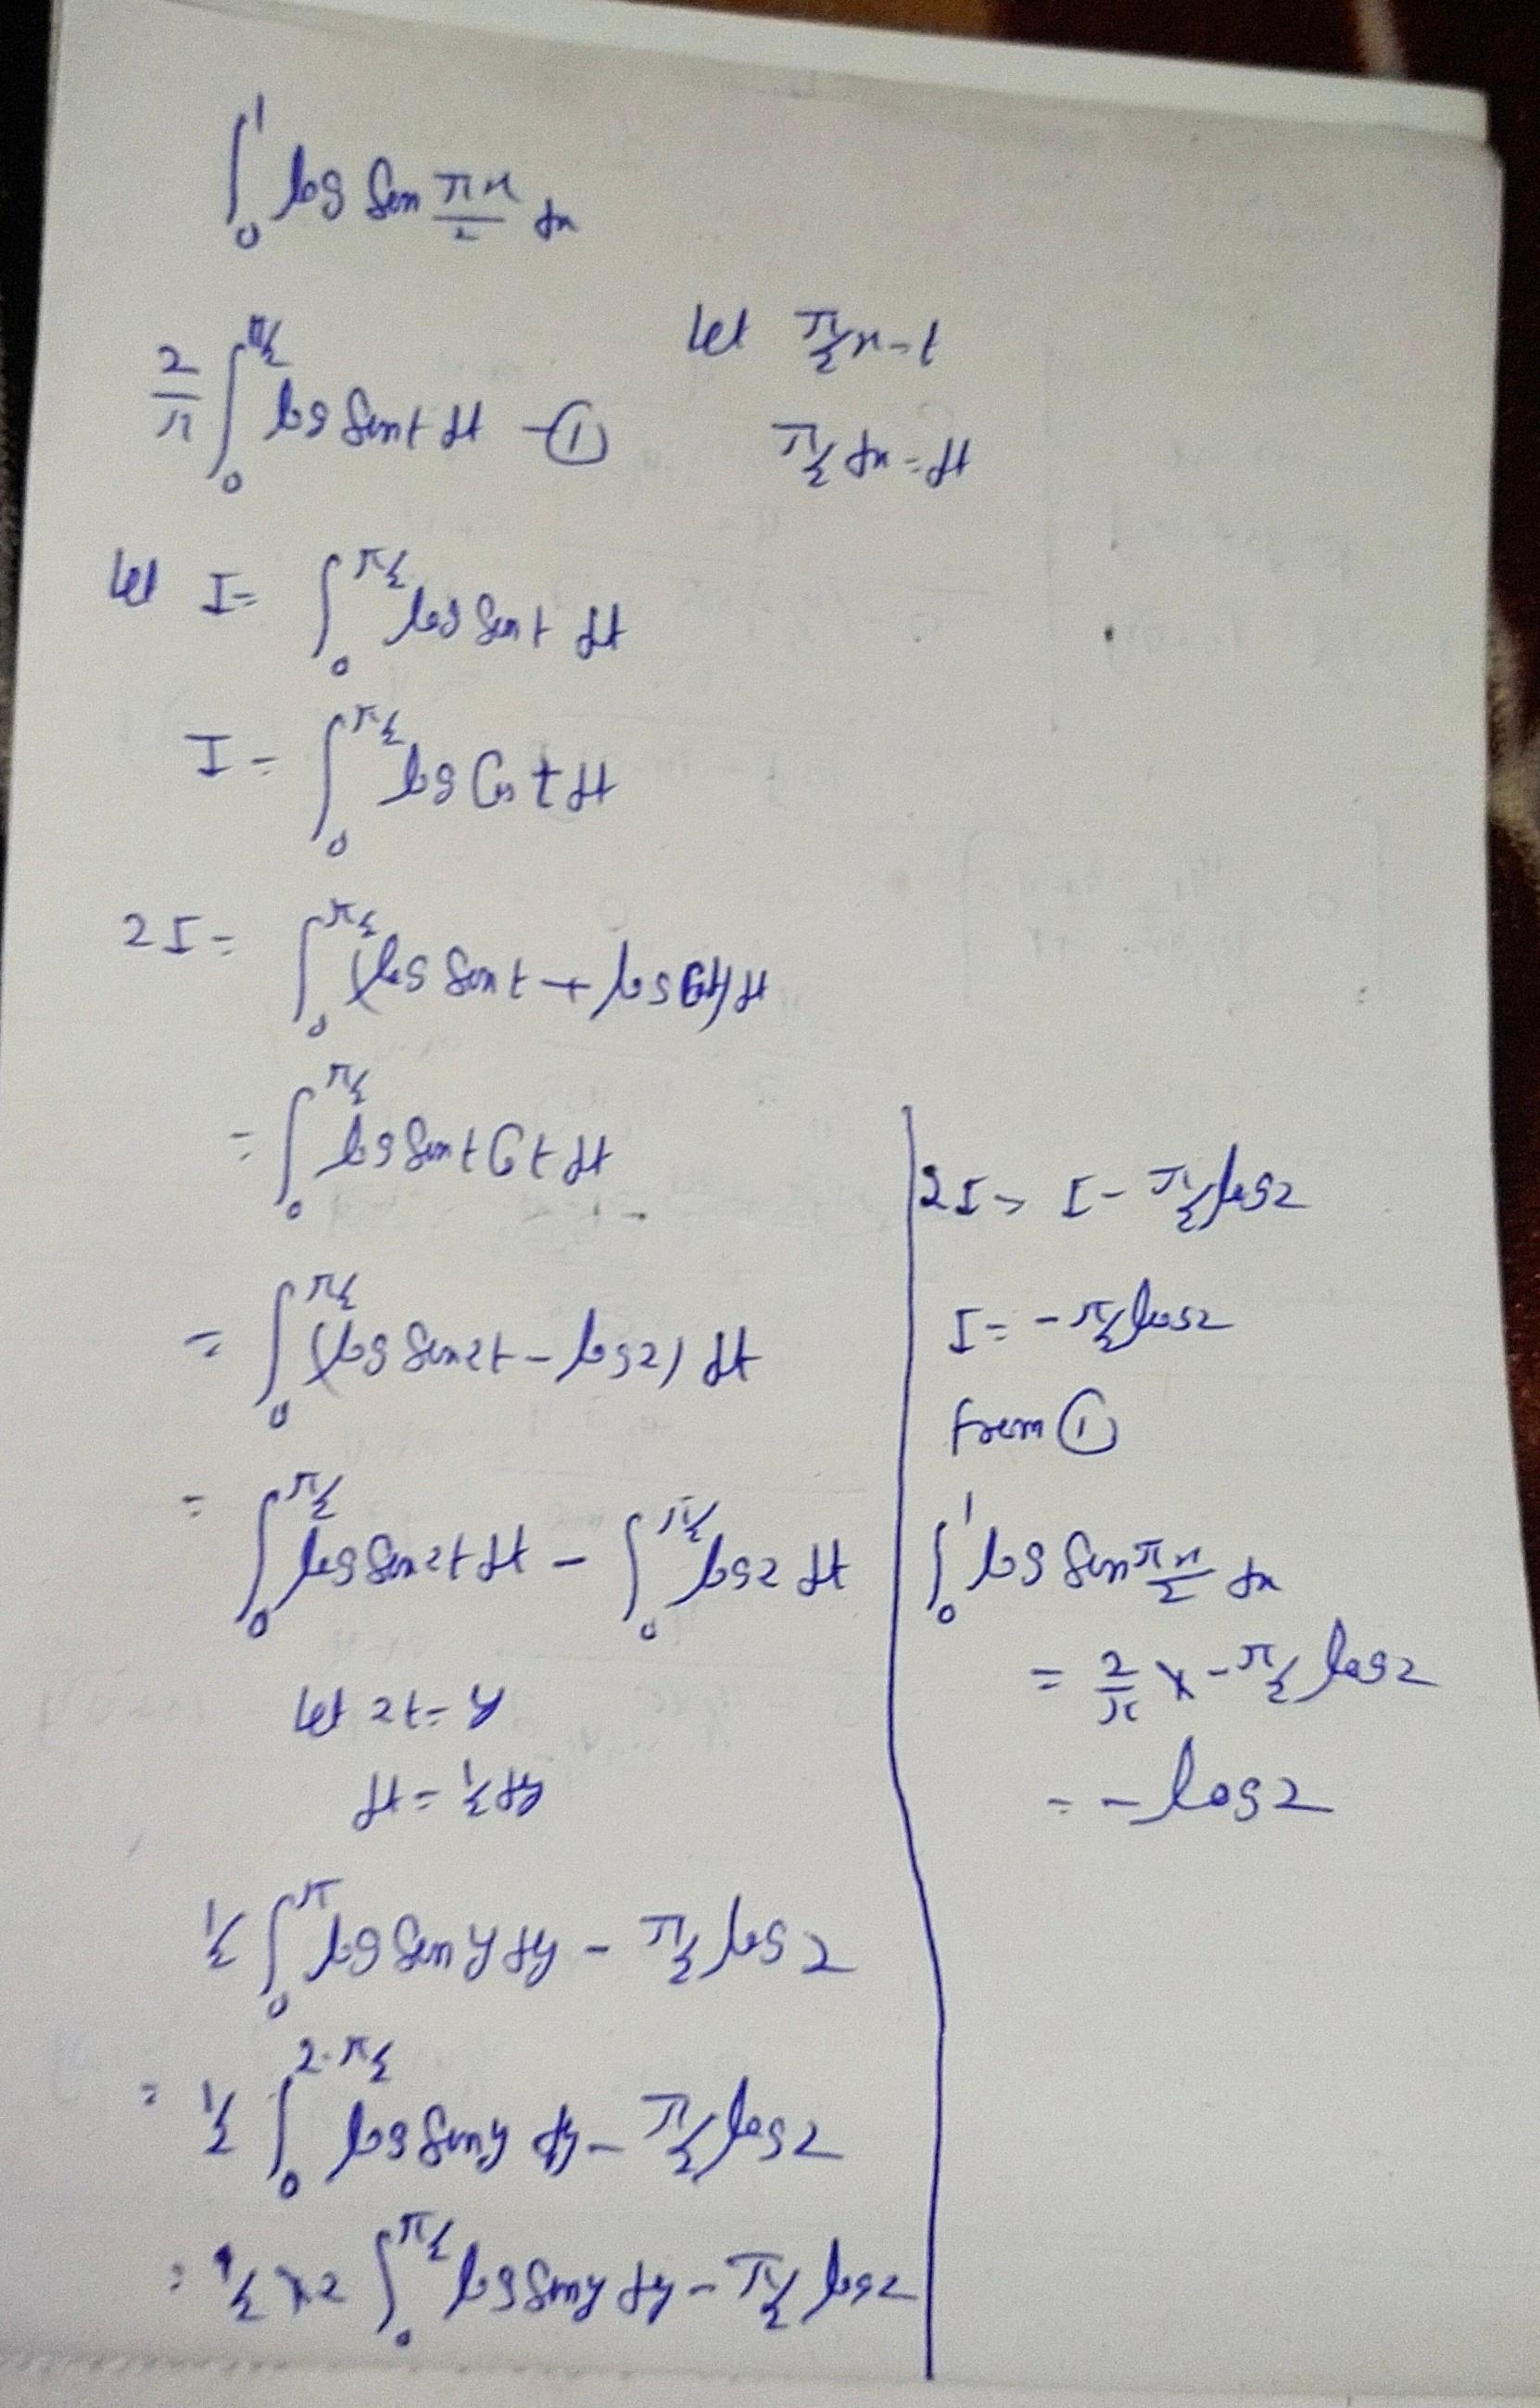 ∫₀¹ log sin πx/2 dx
2/π ∫₀^{π/2} log sin t dt - ①
Let π/2 x = t
π/2 dx = dt
Let I = ∫₀^{π/2} log sin t dt
I = ∫₀^{π/2} log cos t dt
2I = ∫₀^{π/2} (log sin t + log cos t) dt
= ∫₀^{π/2} log sin t cos t dt
= ∫₀^{π/2} (log sin 2t - log 2) dt
= ∫₀^{π/2} log sin 2t dt - ∫₀^{π/2} log 2 dt
Let 2t = y
dt = 1/2 dy
1/2 ∫₀^π log sin y dy - π/2 log 2
= 1/2 ∫₀^{2·π/2} log sin y dy - π/2 log 2
= 1/2 × 2 ∫₀^{π/2} log sin y dy - π/2 log 2
2I = I - π/2 log 2
I = - π/2 log 2
from ①
∫₀¹ log sin πx/2 dx
= 2/π × - π/2 log 2
= - log 2